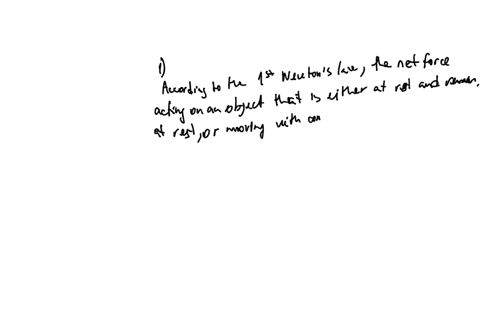 1)
According to the 1st Newton's law, the net force
acting on an object that is either at rest and remain,
at rest, or moving with con